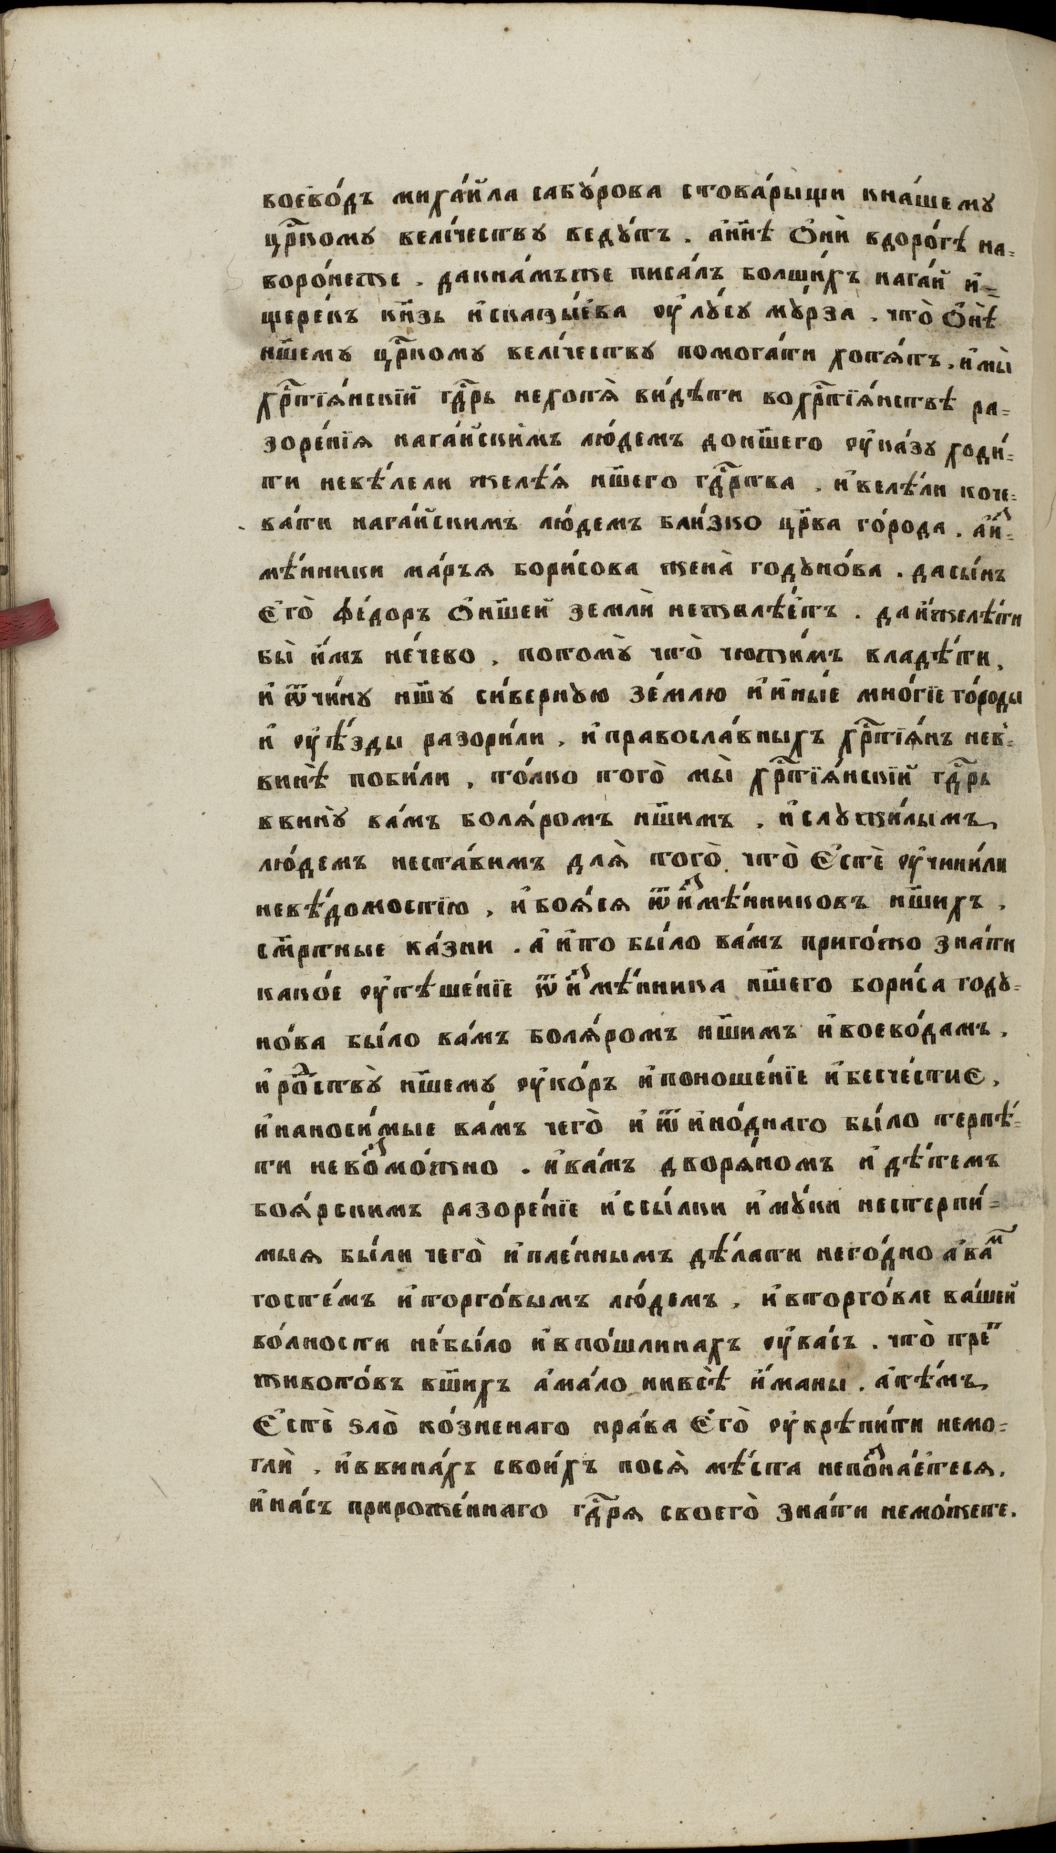 воево́дъ миха́йла сабꙋ́рова стова́рыщи кна́шемꙋ
црⷭ҇комꙋ вели́чествꙋ ведꙋ́тъ . анн҃ѣ ѻ҆нѝ вдоро́гѣ на-
воро́неже . дакна́мъже писа́лъ болши́хъ нага́й и҆-
щере́къ кн҃зь и҆сказы́ева ᲂу҆лꙋ́сꙋ мꙋ́рза . что̀ ѻ҆нѣ
нш҃емꙋ црⷭ҇комꙋ вели́чествꙋ помога́ти хотѧ́тъ . и҆мы̀
хрⷭ҇тїѧ́нскїй гдⷭ҇рь нехотѧ̀ ви́дѣти вохрⷭ҇тїѧ́нствѣ ра-
зоре́нїѧ нага́йскимъ лю́демъ донш҃его ᲂу҆ка́зꙋ ходи́-
ти невѣ́лели желѣ́ѧ нш҃его гдⷭ҇рства . и҆велѣ́ли коче-
ва́ти нага́йскимъ лю́демъ бли́зко цр҃ва го́рода . а҆и҆ꙁ-
мѣ́нники ма́рьѧ бори́сова жена̀ годꙋно́ва . дасы́нъ
є҆го̀ фе́доръ ѻ҆нш҃ей землѝ нежалѣ́етъ . даи҆желѣ́ти
бы̀ и҆́мъ не́чево , потомꙋ̀ что̀ чюжи́мъ владѣ́ти ,
и҆ ѿчи́нꙋ нш҃ꙋ си́вернꙋю зе́млю и҆ и҆ны́е мно́гїе го́роды
и҆ ᲂу҆ѣ́зды разори́ли , и҆правосла́вныхъ хрⷭ҇тїѧ́нъ нев-
винѣ̀ поби́ли , то́лко того̀ мы̀ хрⷭ҇тїѧ́нскїй гдⷭ҇рь
ввинꙋ̀ ва́мъ болѧ́ромъ нш҃имъ , и҆слꙋжи́лымъ
лю́демъ неста́вимъ длѧ̀ того̀ что̀ є҆стѐ ᲂу҆чини́ли
невѣ́домостїю , и҆боѧ́сѧ ѿи҆ꙁмѣ́нниковъ нш҃ихъ ,
см҃ртные ка́зни . а҆ и҆́то бы́ло ва́мъ приго́жо зна́ти
како́е ᲂу҆тѣше́нїе ѿ и҆ꙁмѣ́нника нш҃его бори́са годꙋ-
но́ва бы́ло ва́мъ болѧ́ромъ нш҃имъ и҆воево́дамъ .
и҆ роⷣствꙋ̀ нш҃емꙋ ᲂу҆ко́ръ и҆поноше́нїе и҆бесче́стие ,
и҆наноси́мые ва́мъ чего̀ и҆ ѿ и҆но́днаго бы́ло терпѣ́-
ти невоꙁмо́жно . и҆ва́мъ дворѧ́номъ и҆ дѣ́темъ
боѧ́рскимъ разоре́нїе и҆ссы́лки и҆мꙋ́ки нестерпи́-
мыѧ бы́ли чего̀ и҆пле́ннымъ дѣ́лати него́дно а҆ваⷨ
госте́мъ и҆торго́вымъ лю́демъ , и҆вторго́вле ва́шей
во́лности не́было и҆впо́шлинахъ ᲂу҆ва́съ . что̀ преⷤ
живото́въ вш҃ихъ а҆ма́ло нивсѣ̀ и҆́маны . а҆тѣ́мъ
є҆стѐ ѕло̀ ко́зненаго нра́ва є҆го̀ ᲂу҆крѣпи́ти немо-
глѝ . и҆ввина́хъ свои́хъ посѧ̀ мѣ́ста непоꙁна́етесѧ .
и҆на́съ прироже́ннаго гдⷭ҇рѧ своего̀ зна́ти немо́жете .